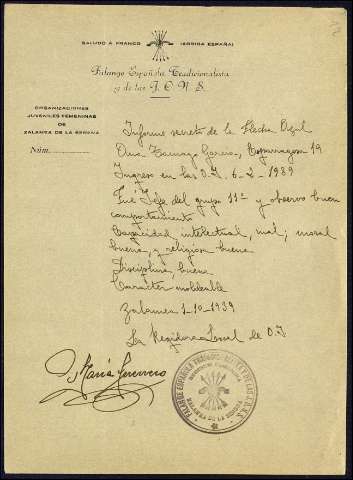 SALUDO A FRANCO ¡ARRIBA ESPAÑA!
Falange Española Tradicionalista
y de las J. O. N. S.
ORGANIZACIONES
JUVENILES FEMENINAS
DE
ZALAMEA DE LA SERENA
Núm.
Informe secreto de la Flecha Azul
Ana Tamayo Garcia, Esparragosa 19
Ingreso en las O.J. 6-2-1939
Fué Jefe del grupo 11º y observo buen
comportamiento
Capacidad intelectual, mal; moral
buena, y religiosa buena
Disciplina, buena
Caracter moldeable
Zalamea 1-10-1939
La Regidora Local de O.J
María Guerrero
FALANGE ESPAÑOLA TRADICIONALISTA Y DE LAS J.O.N.S.